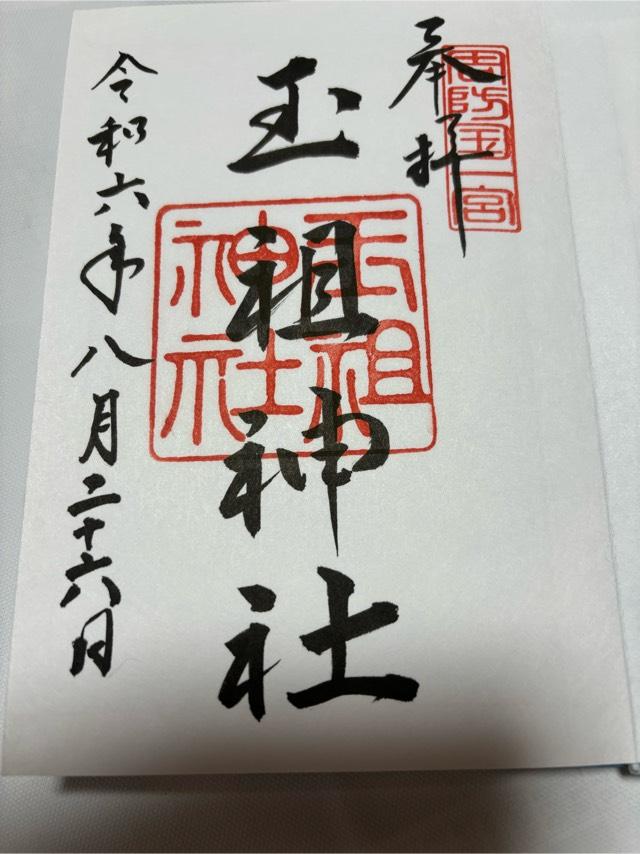 奉拝
周防国一宮
玉祖神社
玉祖
神社
令和六年八月二十六日